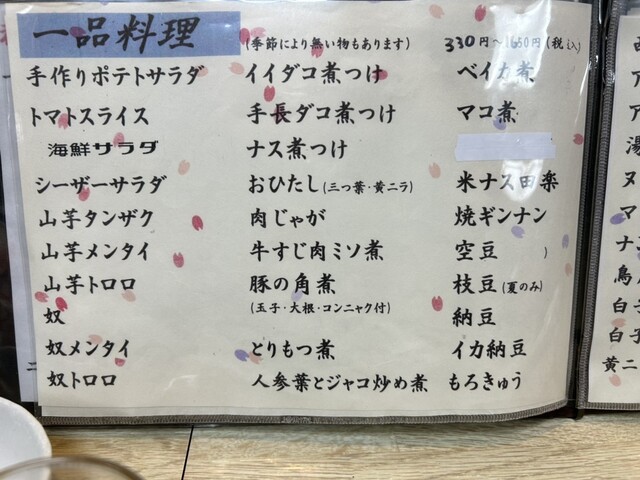 一品料理
(季節により無い物もあります)
330円～1650円(税込)
手作りポテトサラダ
トマトスライス
海鮮サラダ
シーザーサラダ
山芋タンザク
山芋メンタイ
山芋トロロ
奴
奴メンタイ
奴トロロ
イイダコ煮つけ
手長ダコ煮つけ
ナス煮つけ
おひたし(三つ葉・黄ニラ)
肉じゃが
牛すじ肉ミソ煮
豚の角煮
(玉子・大根・コンニャク付)
とりもつ煮
人参葉とジャコ炒め煮
ベイカ煮
マコ煮
米ナス田楽
焼ギンナン
空豆 )
枝豆(夏のみ)
納豆
イカ納豆
もろきゅう